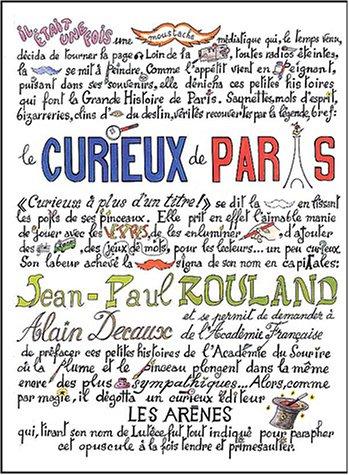 IL ÉTAIT UNE FOIS une moustache médiatique qui, le temps venu,
décida de tourner la page. Loin de la , toutes radios éteintes,
la se mit à peindre. Comme l'appétit vient en peignant,
puisant dans ses souvenirs, elle dénicha ces petites histoires
qui font la Grande Histoire de Paris. Saynettes, mots d'esprit,
bizarreries, clins d' du destin, vérités recouvertes par la légende, bref:
le CURIEUX de PARIS
«Curieux à plus d'un titre!» se dit la en tissant
les poils de ses pinceaux. Elle prit en effet l'aimable manie
de jouer avec les , de les enluminer , d'ajouter
des et , des jeux de mots, pour les lecteurs... un peu curieux.
Son labeur achevé la signa de son nom en capitales:
Jean-Paul ROULAND
et se permit de demander à
Alain Decaux de l'Académie Française
de préfacer ces petites histoires de l'Académie du Sourire
où la plume et le pinceau plongent dans la même
encre des plus sympathiques... Alors, comme
par magie, il dégotta un curieux éditeur
LES ARÈNES
qui, tirant son nom de Lutèce fut tout indiqué pour parapher
cet opuscule à la fois tendre et primesautier.